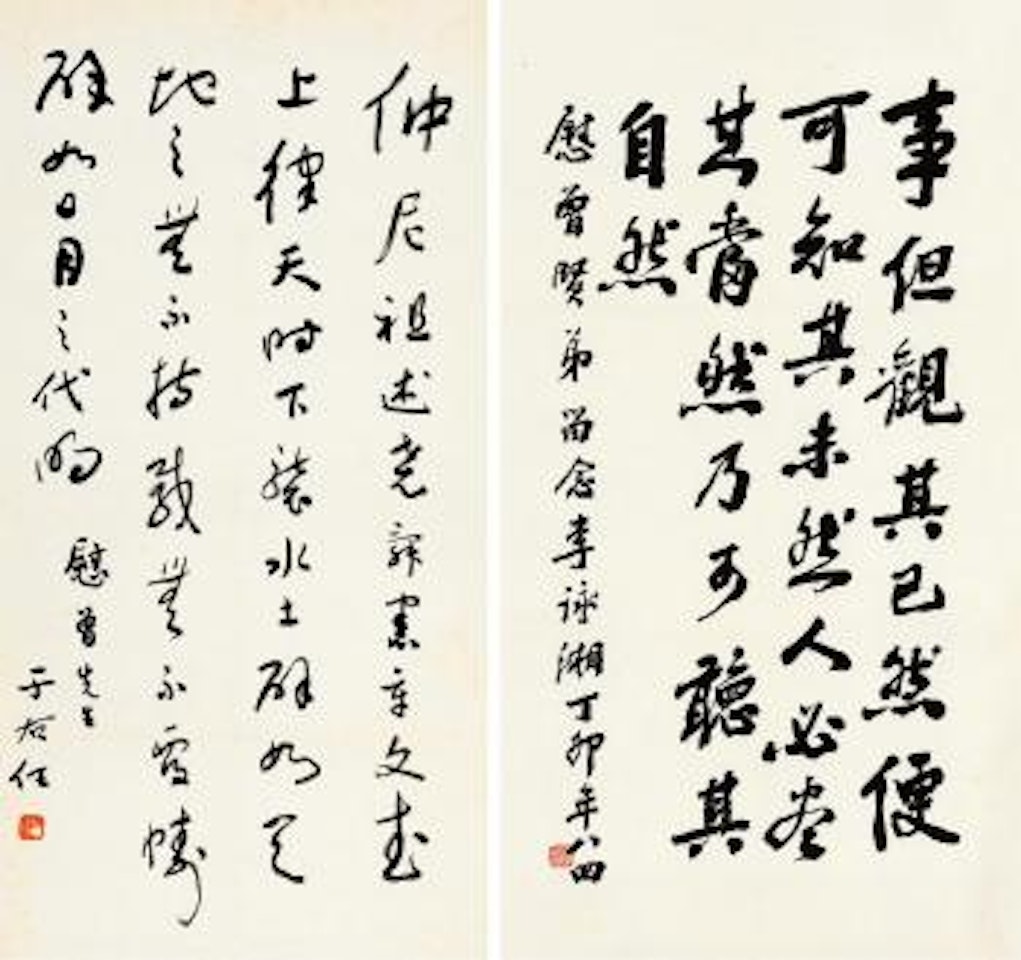 事但觀其已然便
可知其未然人必盡
其當然乃可聽其
自然
慰曾賢弟留念李詠湘丁卯年八四
仲尼祖述堯舜憲章文武
上律天時下襲水土辟如天
地之無不持載無不覆幬
辟如日月之代明
慰曾先生
于右任